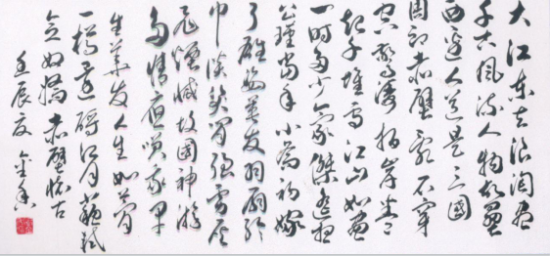 大江东去浪淘尽
千古风流人物故垒
西边人道是三国
周郎赤壁乱石穿
空惊涛拍岸卷
起千堆雪江山如画
一时多少豪杰遥想
公瑾当年小乔初嫁
了雄姿英发羽扇纶
巾谈笑间强虏灰
飞烟灭故国神游
多情应笑我早
生华发人生如梦
一樽还酹江月苏轼
念奴娇赤壁怀古
壬辰夏